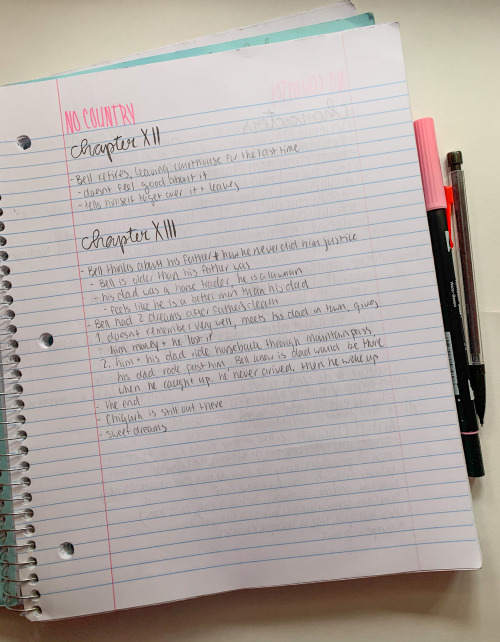 NO COUNTRY
Chapter XII
- Bell retires, leaving courthouse for the last time
- doesnt feel good about it
- tells himself to get over it + leaves
Chapter XIII
- Bell thinks about his father + how he never did him justice
- Bell is older than his father was
- his dad was a horse trader, he is a lawman
- feels like he is a better man than his dad
- Bell had 2 dreams after fathers death
1. doesnt remember very well, meets his dad in town, gives
him money + he lost it
2. him + his dad ride horseback through mountain pass,
his dad rode past him, Bell knew is dad would be there
when he caught up. he never arrived, then he woke up
- the end
- Chigurh is still out there
- sweet dreams